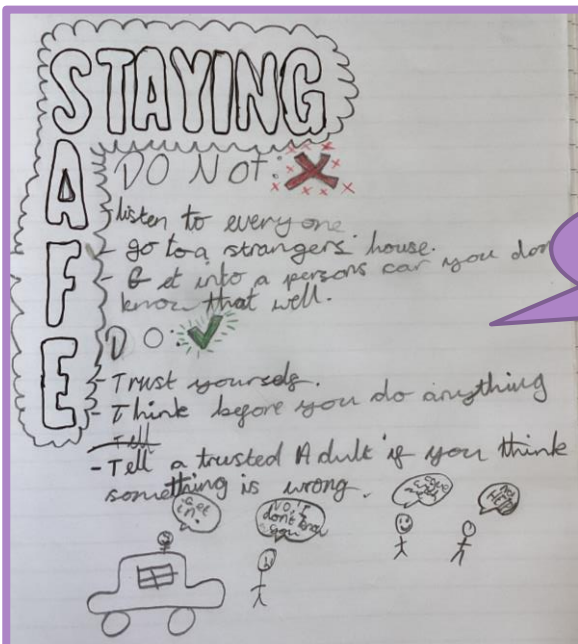 STAYING
AFE
DO NOT:
- listen to everyone.
- go to a strangers house.
- Get into a persons car you don
know that well.
DO:
- Trust yourself.
- Think before you do anything
Tell
- Tell a trusted Adult if you think
something is wrong.
Get
in.
NO, I
don't know
you